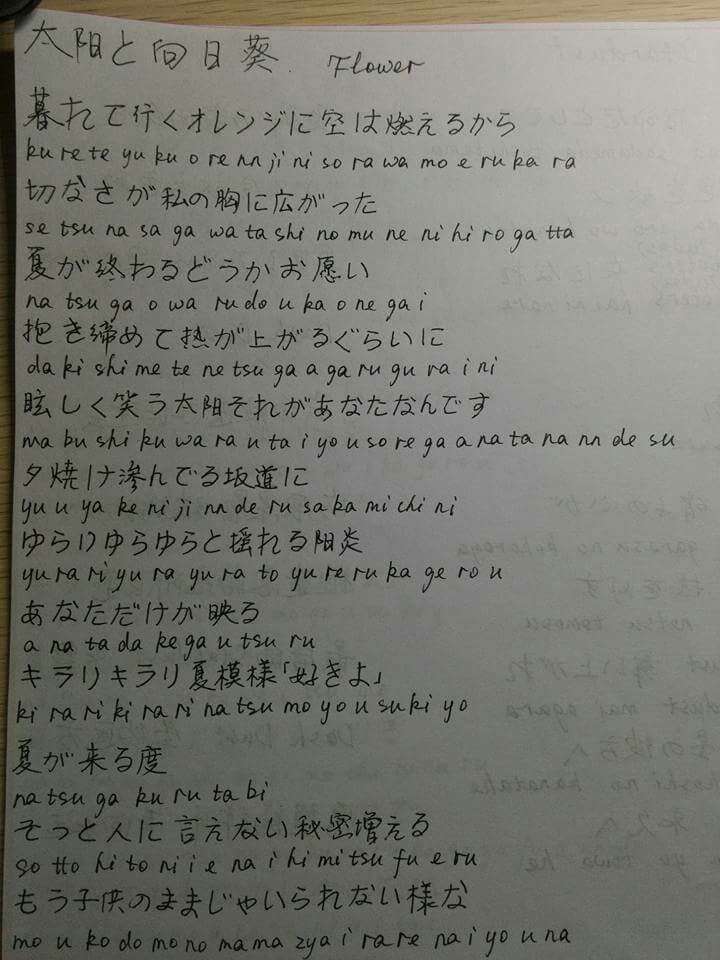 太阳と向日葵 Flower
暮れて行くオレンジに空は燃えるから
ku re te yu ku o re nn ji ni so ra wa mo e ru ka ra
切なさが私の胸に広がった
se tsu na sa ga wa ta shi no mu ne ni hi ro ga tta
夏が終わるどうかお願い
na tsu ga o wa ru do u ka o ne ga i
抱き締めて热が上がるぐらいに
da ki shi me te ne tsu ga a ga ru gu ra i ni
眩しく笑う太阳それがあなたなんです
ma bu shi ku wa ra u ta i yo u so re ga a na ta na nn de su
夕焼け滲んでる坂道に
yu u ya ke ni ji nn de ru sa ka mi chi ni
ゆらりゆらゆらと揺れる阳炎
yu ra ri yu ra yu ra to yu re ru ka ge ro u
あなただけが映る
a na ta da ke ga u tsu ru
キラリキラリ夏模様「好きよ」
ki ra ri ki ra ri na tsu mo yo u su ki yo
夏が来る度
na tsu ga ku ru ta bi
そっと人に言えない秘密増える
so tto hi to ni i e na i hi mi tsu fu e ru
もう子供のままじゃいられない様な
mo u ko do mo no ma ma zya i ra re na i yo u na